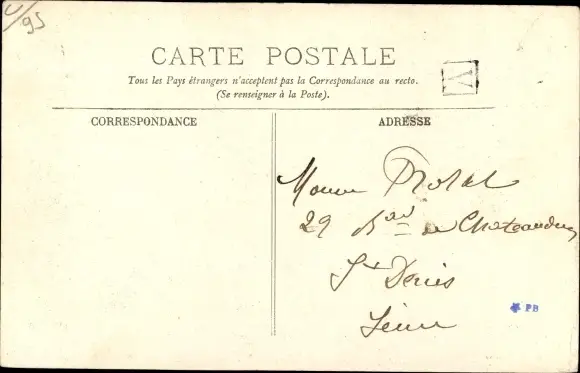 U/95
CARTE POSTALE
Tous les Pays étrangers n'acceptent pas la Correspondance au recto.
(Se renseigner à la Poste).
CORRESPONDANCE
ADRESSE
29 B^ard de Chateaudun
S^t Denis
Seine
PB